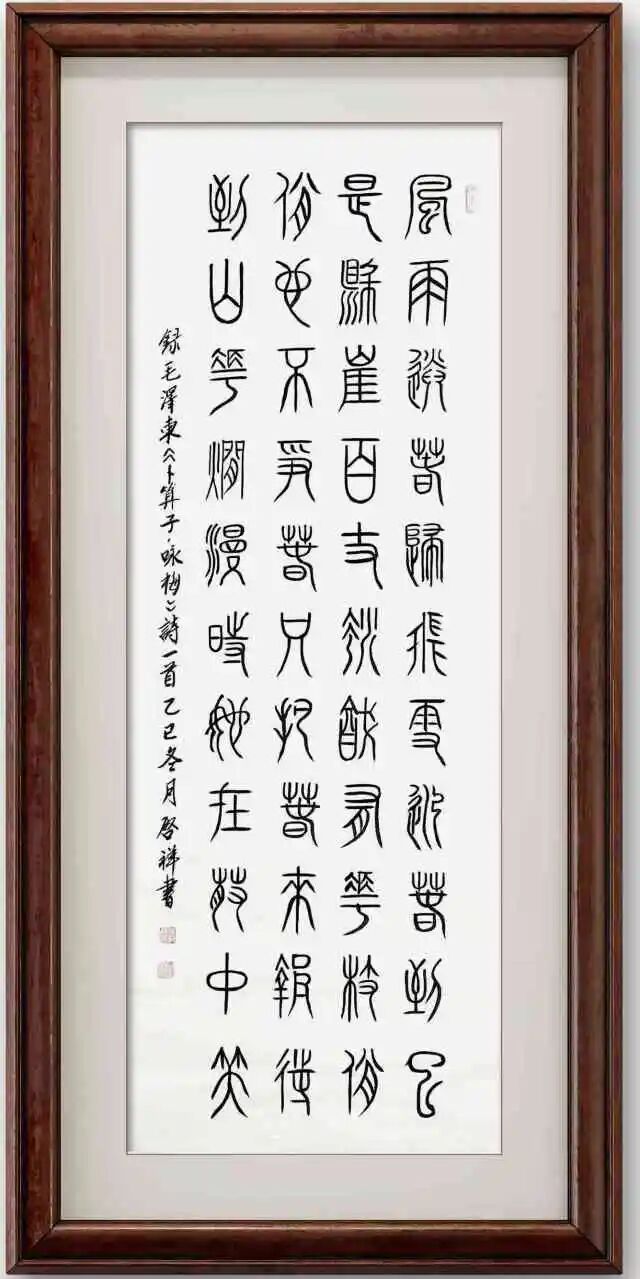 風雨送春歸飛雪迎春到已
是縣崖百丈冰猷有花枝俏
俏也不爭春只把春來報待
到山花爛漫時她在叢中笑
錄毛澤東《卜算子·咏梅》詩一首乙巳冬月啓祥書